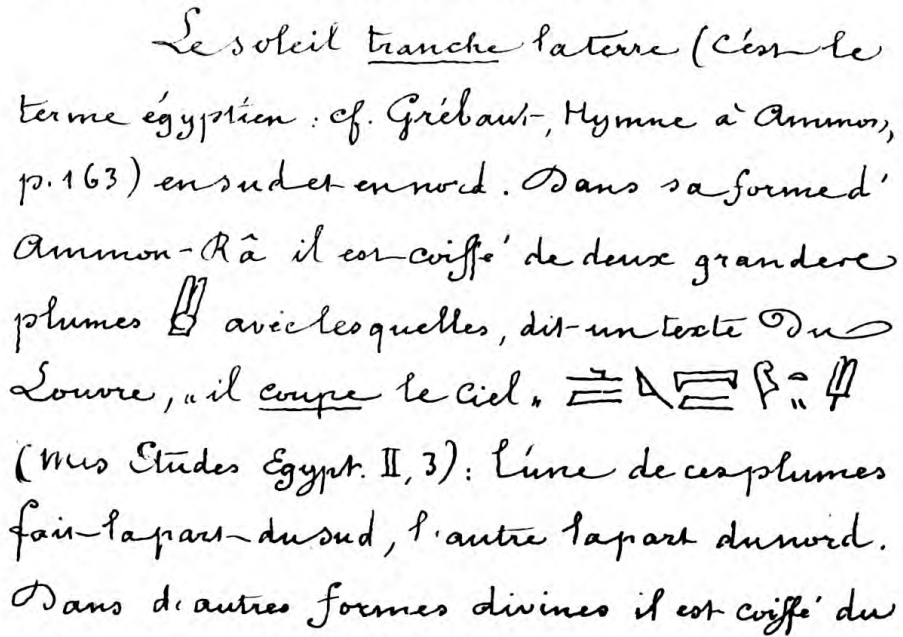 Le soleil tranche la terre (c'est le
terme égyptien : cf. Grébaut, Hymne à Ammon,
p. 163) en sud et en nord. Dans sa forme d'
Ammon-Râ il est coiffé de deux grandes
plumes avec lesquelles, dit un texte du
Louvre, „il coupe le ciel„
(mes Études Égypt. II, 3) : l'une de ces plumes
fait la part du sud, l'autre la part du nord.
Dans d'autres formes divines il est coiffé du